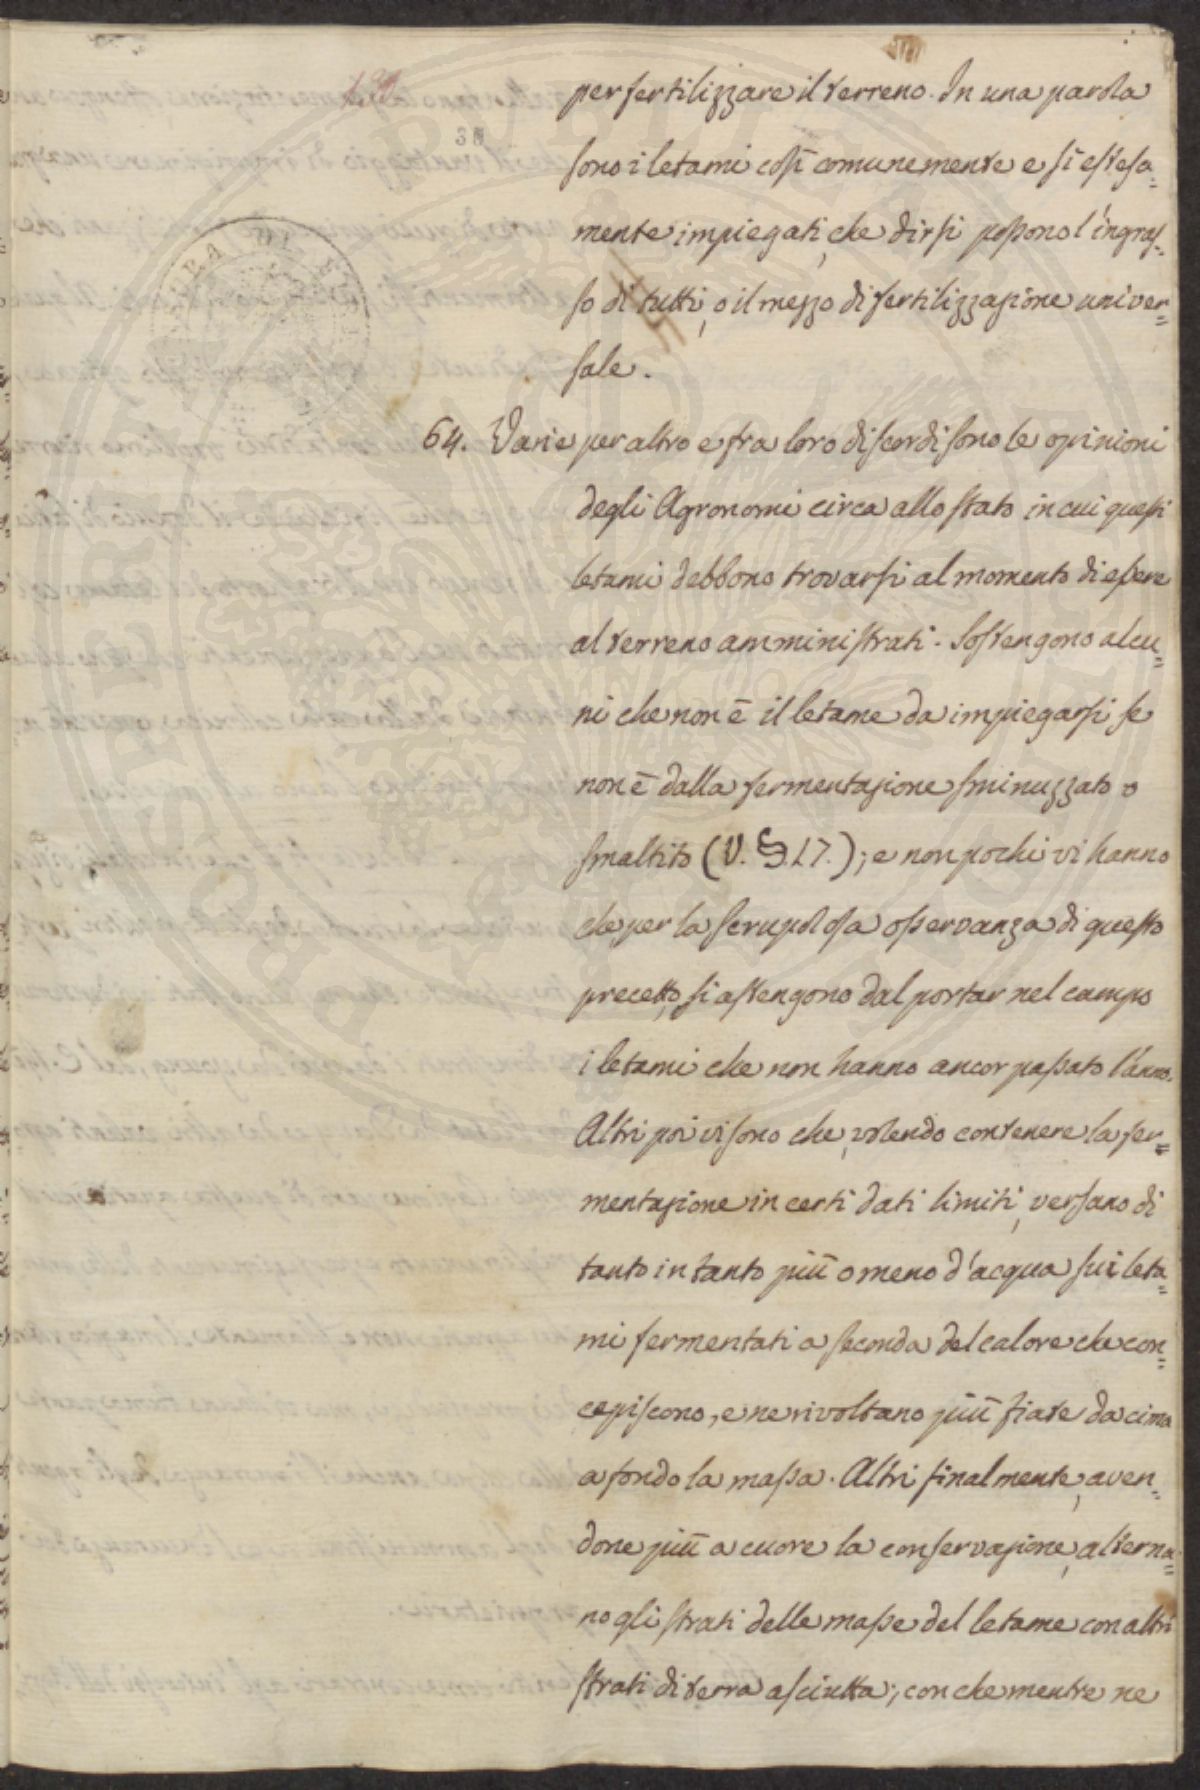 per fertilizzare il terreno. In una parola
sono i letami così comunemente e sì estesa=
mente impiegati, che dirsi possono l'ingras=
so di tutti, o il mezzo di fertilizzazione univer=
sale.
64. Varie per altro e fra loro discordi sono le opinioni
degli Agronomi circa allo stato in cui questi
letami debbono trovarsi al momento di essere
al terreno amministrati. Sostengono alcu=
ni che non è il letame da impiegarsi se
non è dalla fermentazione sminuzzato o
smaltito (V. §. 17.); e non pochi vi hanno
che per la scrupolosa osservanza di questo
precetto, si astengono dal portar nel campo
i letami che non hanno ancor passato l'anno.
Altri poi vi sono che, volendo contenere la fer=
mentazione in certi dati limiti, versano di
tanto in tanto più o meno d'acqua sui leta=
mi fermentati a seconda del calore che con=
cepiscono, e ne rivoltano più fiate da cima
a fondo la massa. Altri finalmente, aven=
done più a cuore la conservazione, alterna=
no gli strati delle masse del letame con altri
strati di terra asciutta; con che mentre ne